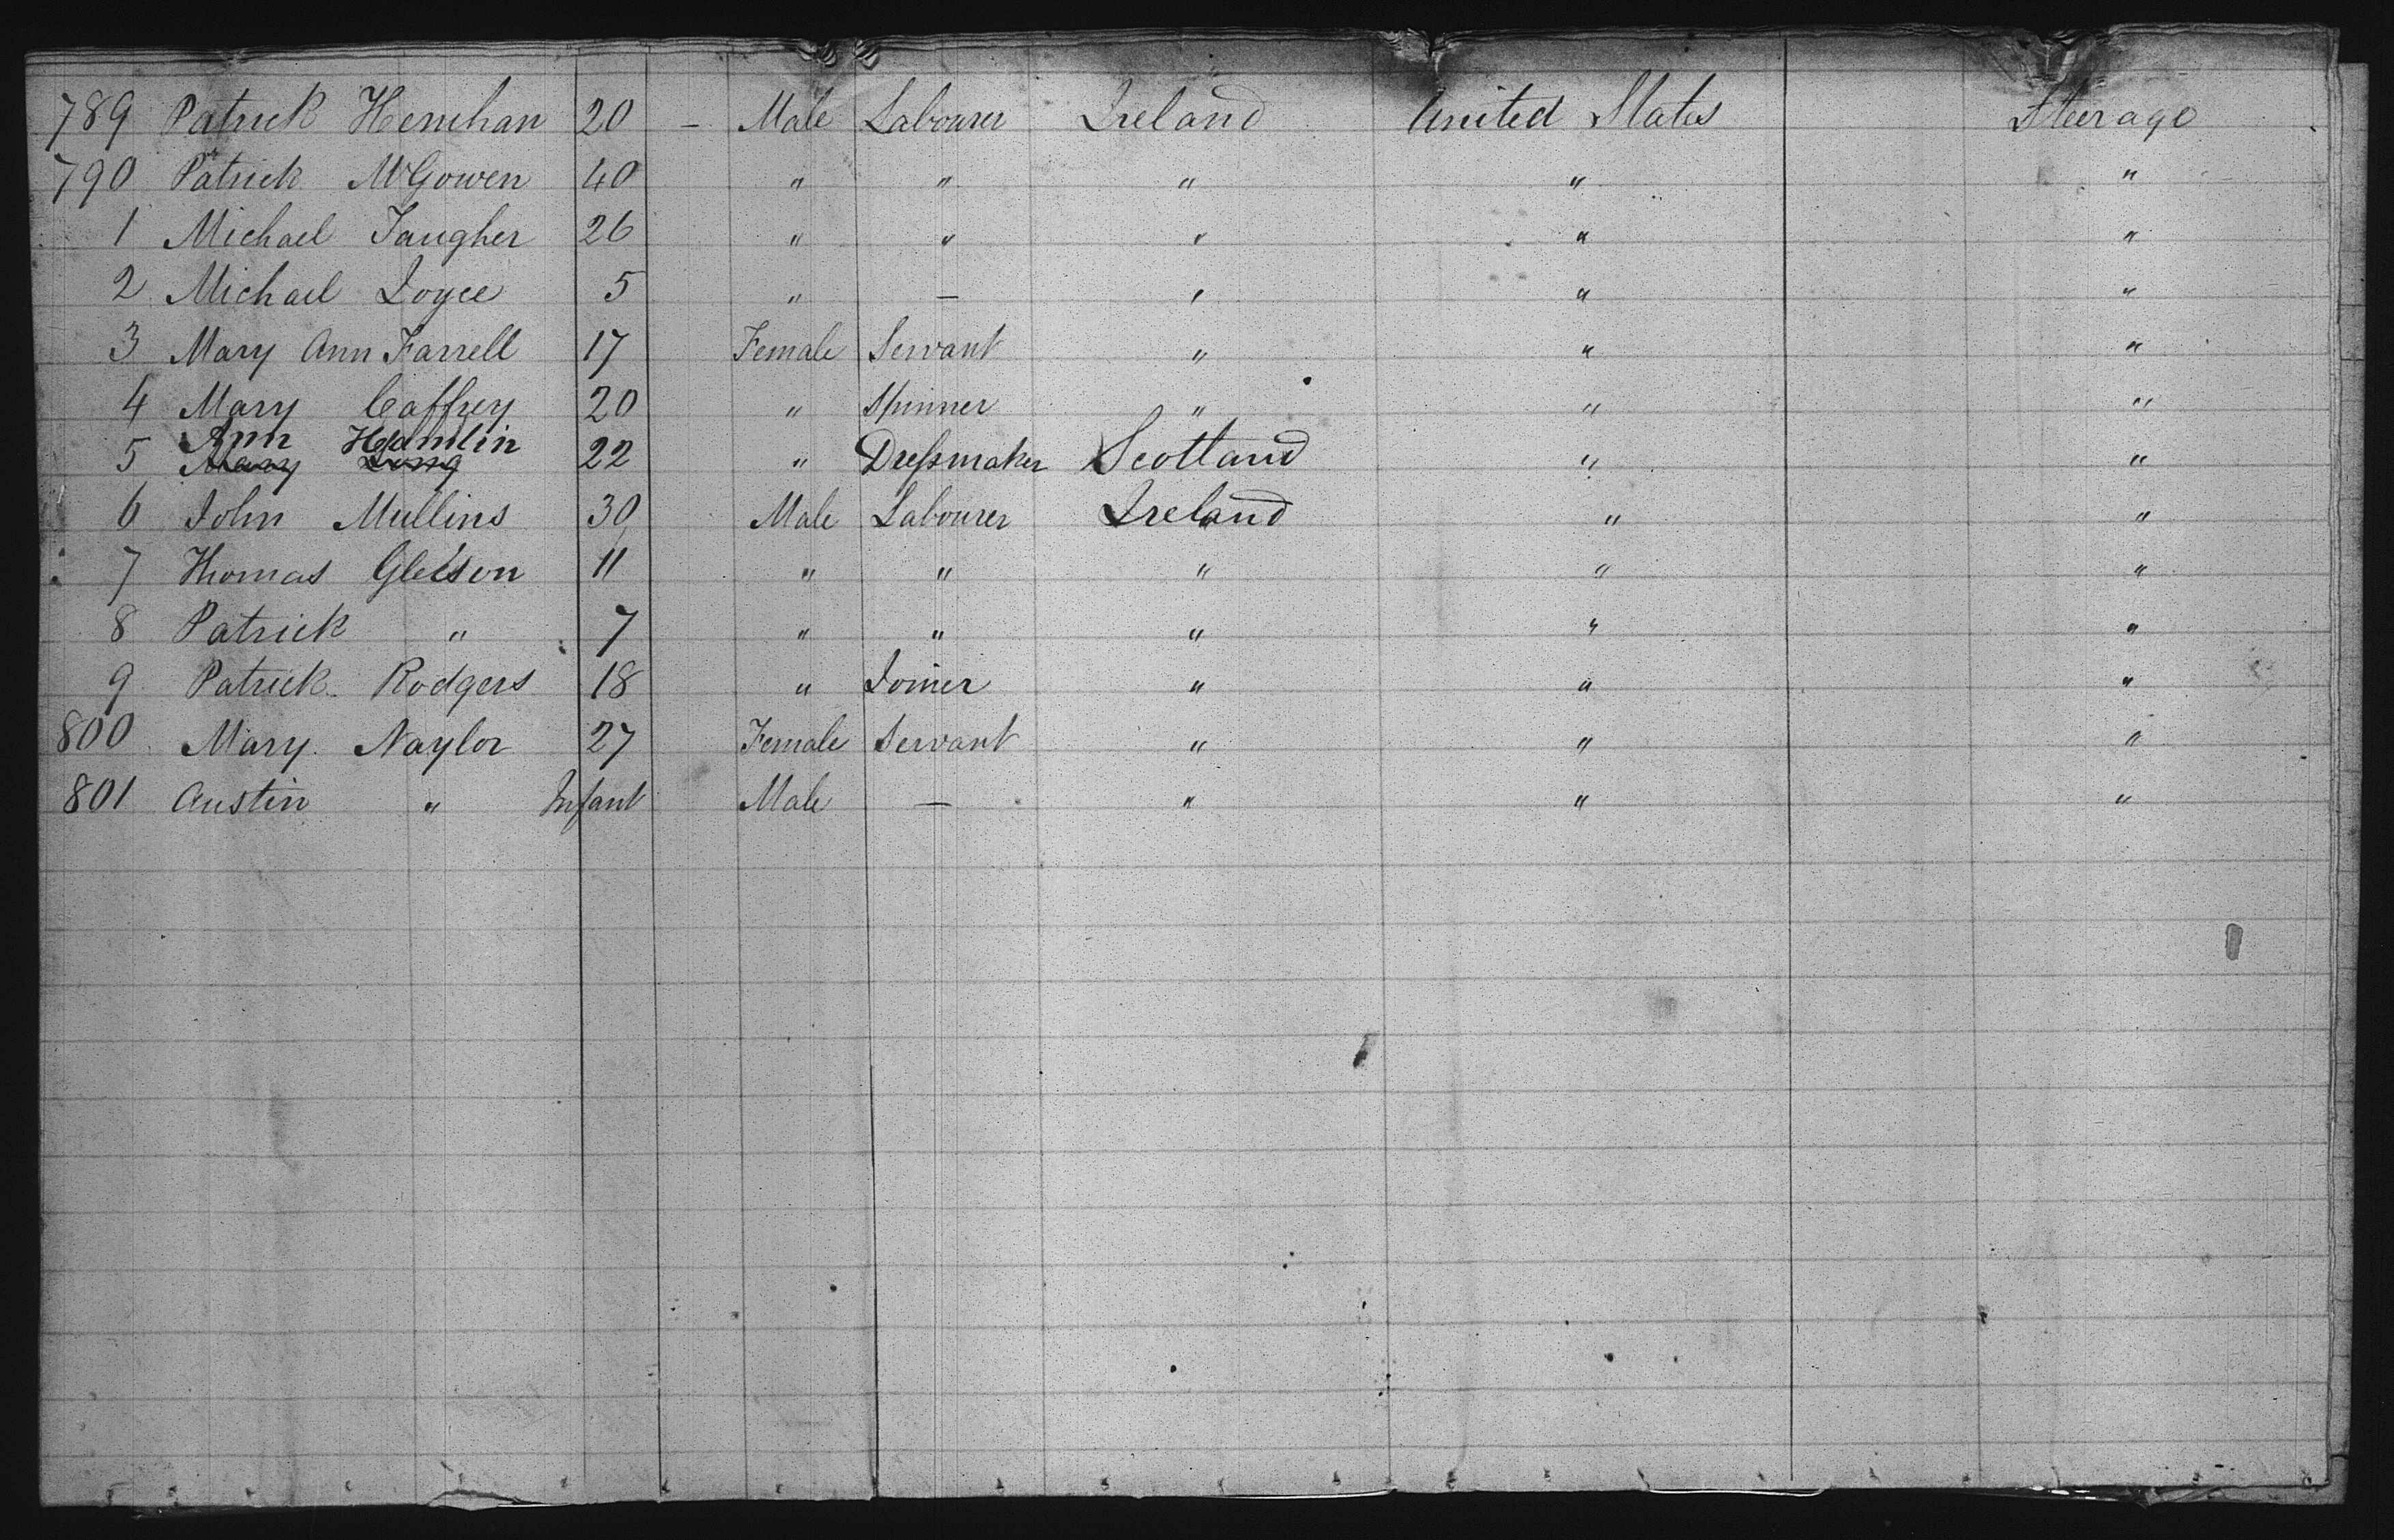 789 Patrick Henehan 20 - Male Labourer Ireland United States Steerage
790 Patrick McGowen 40 " " " " "
1 Michael Taugher 26 " " " " "
2 Michael Joyce 5 " — " " "
3 Mary Ann Farrell 17 Female Servant " " "
4 Mary Caffrey 20 " Spinner " " "
Ann Hamlin
5 Mary Long 22 " Dressmaker Scotland " "
6 John Mullins 30 Male Labourer Ireland " "
7 Thomas Gleeson 11 " " " " "
8 Patrick " 7 " " " " "
9 Patrick Rodgers 18 " Joiner " " "
800 Mary Naylor 27 Female Servant " " "
801 Austin " Infant Male — " " "